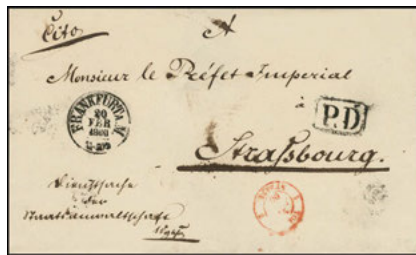 Cito
A
Monsieur le Préfet Imperial
à
P.D
FRANKFURT A. M.
20
FEB
Straßbourg.
Dienstsache
der
Staatsanwaltschaft